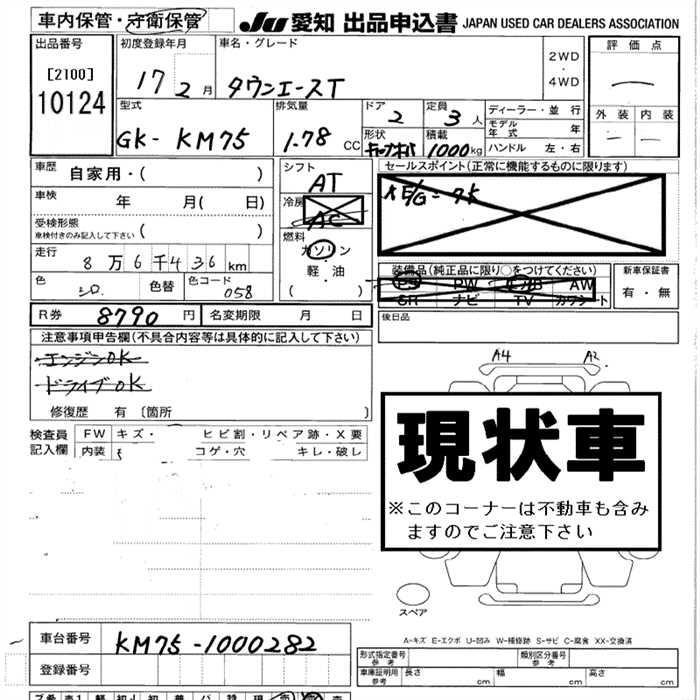 車内保管・守衛保管
JU 愛知 出品申込書 JAPAN USED CAR DEALERS ASSOCIATION
出品番号
[2100]
10124
初度登録年月
17 2 月
車名・グレード
タウンエースT
2WD
・
4WD
評価点
外装 内装
型式
GK- KM75
排気量
1.78 CC
ドア
2
定員
3 人
形状
積載
1000 kg
ディーラー・並行
モデル年式 年
ハンドル 左・右
車歴
自家用・( )
車検
年 月( 日)
受検形態
車検付きのみ記入して下さい ( )
走行
8万6千436 km
色
シロ
色替
色コード
058
シフト
AT
冷房
AC
燃料
ガソリン
・
軽・油
( )
セールスポイント(正常に機能するものに限ります)
装備品(純正品に限り○をつけてください)
PS PW AW
SR ナビ TV カワシート
新車保証書
有・無
後日品
R券 8790 円
名変期限 月 日
注意事項申告欄(不具合内容等は具体的に記入して下さい)
エンジンOK
ドライブOK
修復歴 有〔箇所 〕
検査員記入欄
FW キズ・ ヒビ割・リペア跡・X要
内装 コゲ・穴 キレ・破レ
A4 A2
現状車
※このコーナーは不動車も含み
ますのでご注意下さい
スペア
A-キズ E-エクボ U-凹み W-補修跡 S-サビ C-腐食 XX-交換済
車台番号 KM75-1000282
登録番号
形式指定番号 参考
類別区分番号 参考
車庫証明用 参考 長さ cm 幅 cm 高さ cm